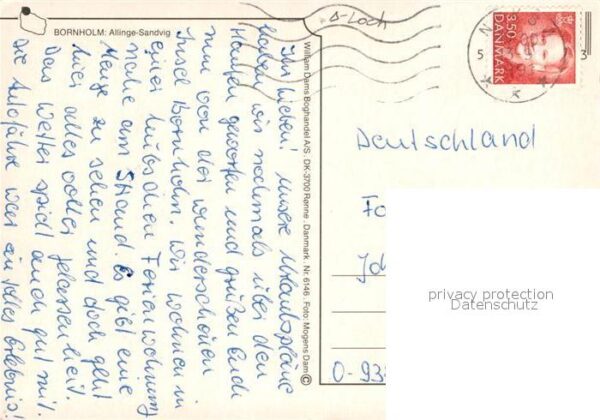 BORNHOLM: Allinge-Sandvig
Δ-Loch
Ihr Lieben! Unsere Urlaubspläne
haben wir nochmals über den
Haufen geworfen und grüßen Euch
nun von der wunderschönen
Insel Bornholm. Wir wohnen in
einer hübschen Ferienwohnung
nahe am Strand. Es gibt eine
Menge zu sehen und doch geht
hier alles voller Gelassenheit.
Das Wetter spielt auch gut mit.
Die Autofähre war ein tolles Erlebnis!
William Dams Boghandel A/S · DK-3700 Rønne · Danmark. Nr. 6146. Foto: Mogens Dam ©
3.50
DANMARK
5
3
Deutschland
Fa
O-93
privacy protection
Datenschutz